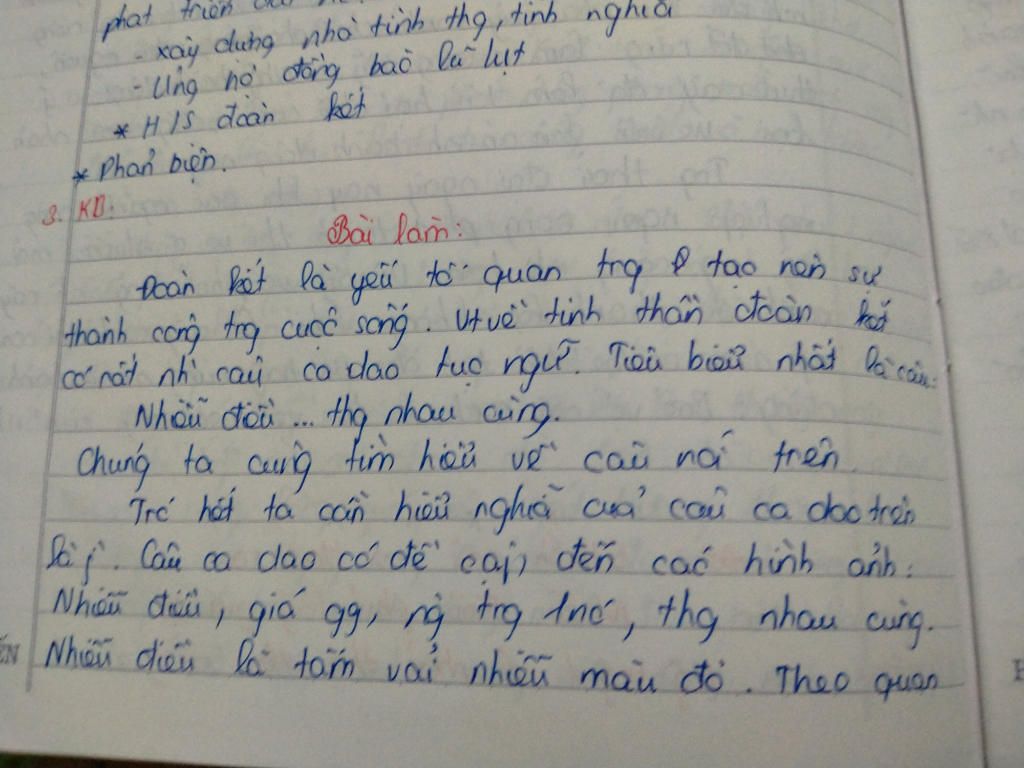 phát triển
- xây dựng nhà tình thg, tình nghĩa
- Ủng hộ đồng bào lũ lụt
* H/S đoàn kết
* Phản biện.
3. KB:
Bài làm:
Đoàn kết là yếu tố quan trg để tạo nên sự
thành công trg cuộc sống. Vt về tinh thần đoàn kết
có rất nh` câu ca dao tục ngữ. Tiêu biểu nhất là câu:
Nhiễu điều ... thg nhau cùng.
Chúng ta cùng tìm hiểu về câu nói trên.
Trc hết ta cần hiểu nghĩa của câu ca dao trên
là j`. Câu ca dao có đề cập đến các hình ảnh:
Nhiễu điều, giá gg, ng` trg 1 nc', thg nhau cùng.
Nhiễu điều là tấm vải nhiễu màu đỏ. Theo quan